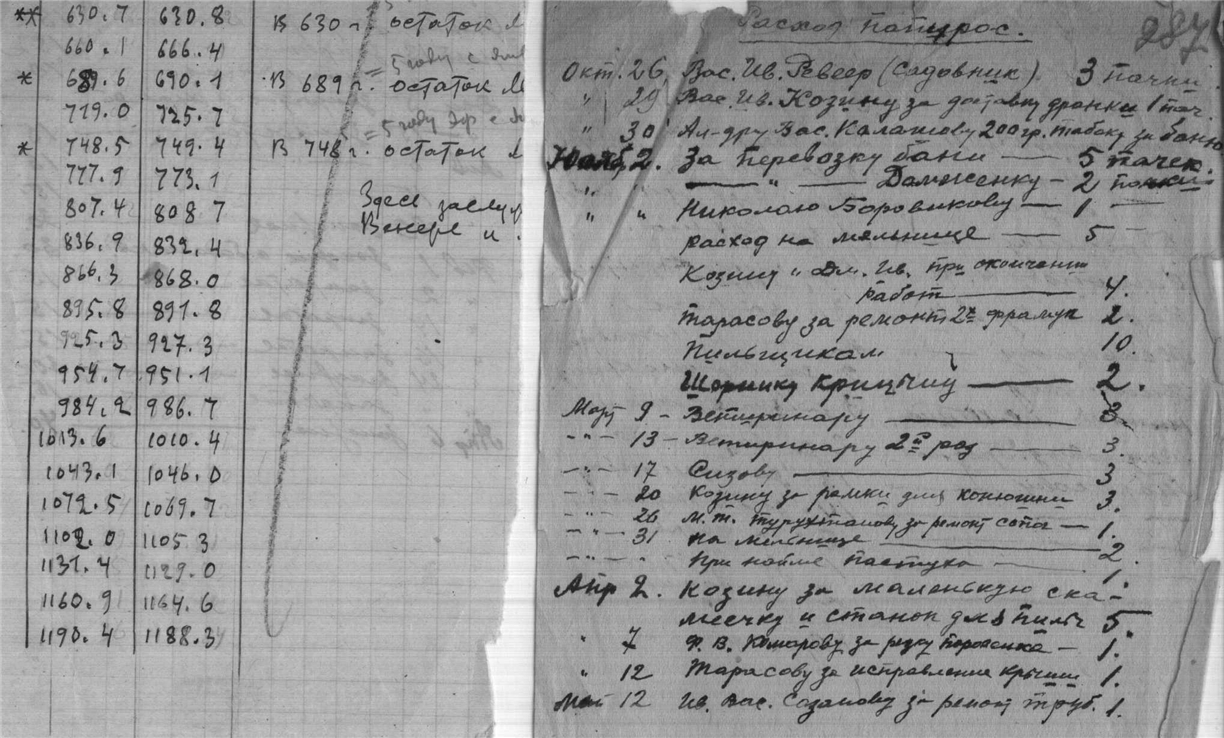 ** 630.7 630.8 В 630 г. остаток
660.1 666.4 = 5 году с
* 689.6 690.1 В 689 г. остаток
719.0 725.7 = 5 году
* 748.5 749.4 В 748 г. остаток
777.9 773.1
807.4 808 7 Здесь
836.9 832.4 Венере и
866.3 868.0
895.8 891.8
925.3 927.3
954.7 951.1
984.2 986.7
1013.6 1010.4
1043.1 1046.0
1072.5 1069.7
1102.0 1105.3
1131.4 1129.0
1160.9 1164.6
1190.4 1188.3
287
Расход папирос.
Окт. 26 Вас. Ив. (Садовник) 3 пачки
" 29 Вас. Ив. Козину за доставку дранки 1 пач.
" 30 Ал-дру Вас. Калашову 200 гр. табаку за баню
Нояб. 2. За перевозку бани — 5 пачек.
— " — — 2 пачки
" " Николаю Боровикову — 1 —
расход на мельнице — 5 —
Козину и Дм. Ив. при окончании
работ — 4.
Тарасову за ремонт 2х фрамуг 2.
Пильщикам 10.
Шорнику — 2.
Март 9 - Ветиринару — 3
-"- 13 - Ветиринару 2й раз — 3.
-"- 17 Сизову — 3
-"- 20 Козину за рамки для конюшни 3.
-"- 26 М. Т. за ремонт — 1.
-"- 31 на мельнице — 2
-"- " При найме пастуха — 1.
Апр 2. Козину за маленькую ска-
меечку и станок для пилы 5
" 7 Ф. В. Комарову за поросенка - 1.
" 12 Тарасову за исправление крыши 1.
Май 12 Ив. Вас. Сазанову за ремонт труб. 1.